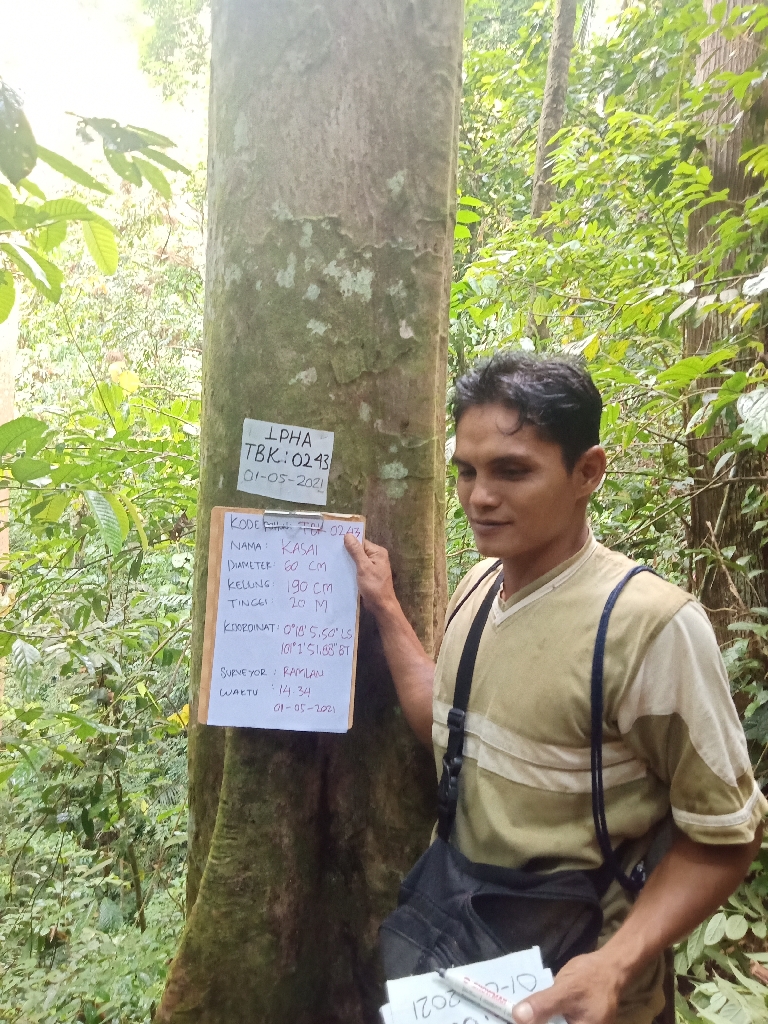 LPHA
TBK: 0243
01-05-2021
KODE POHON TBK 0243
NAMA : KASAI
DIAMETER : 60 CM
KELILING : 190 CM
TINGGI : 20 M
KOORDINAT : 0°18'5,50" LS
101°1'51,88" BT
SURVEYOR : RAMLAN
WAKTU : 14.34
01-05-2021
2021
01-0